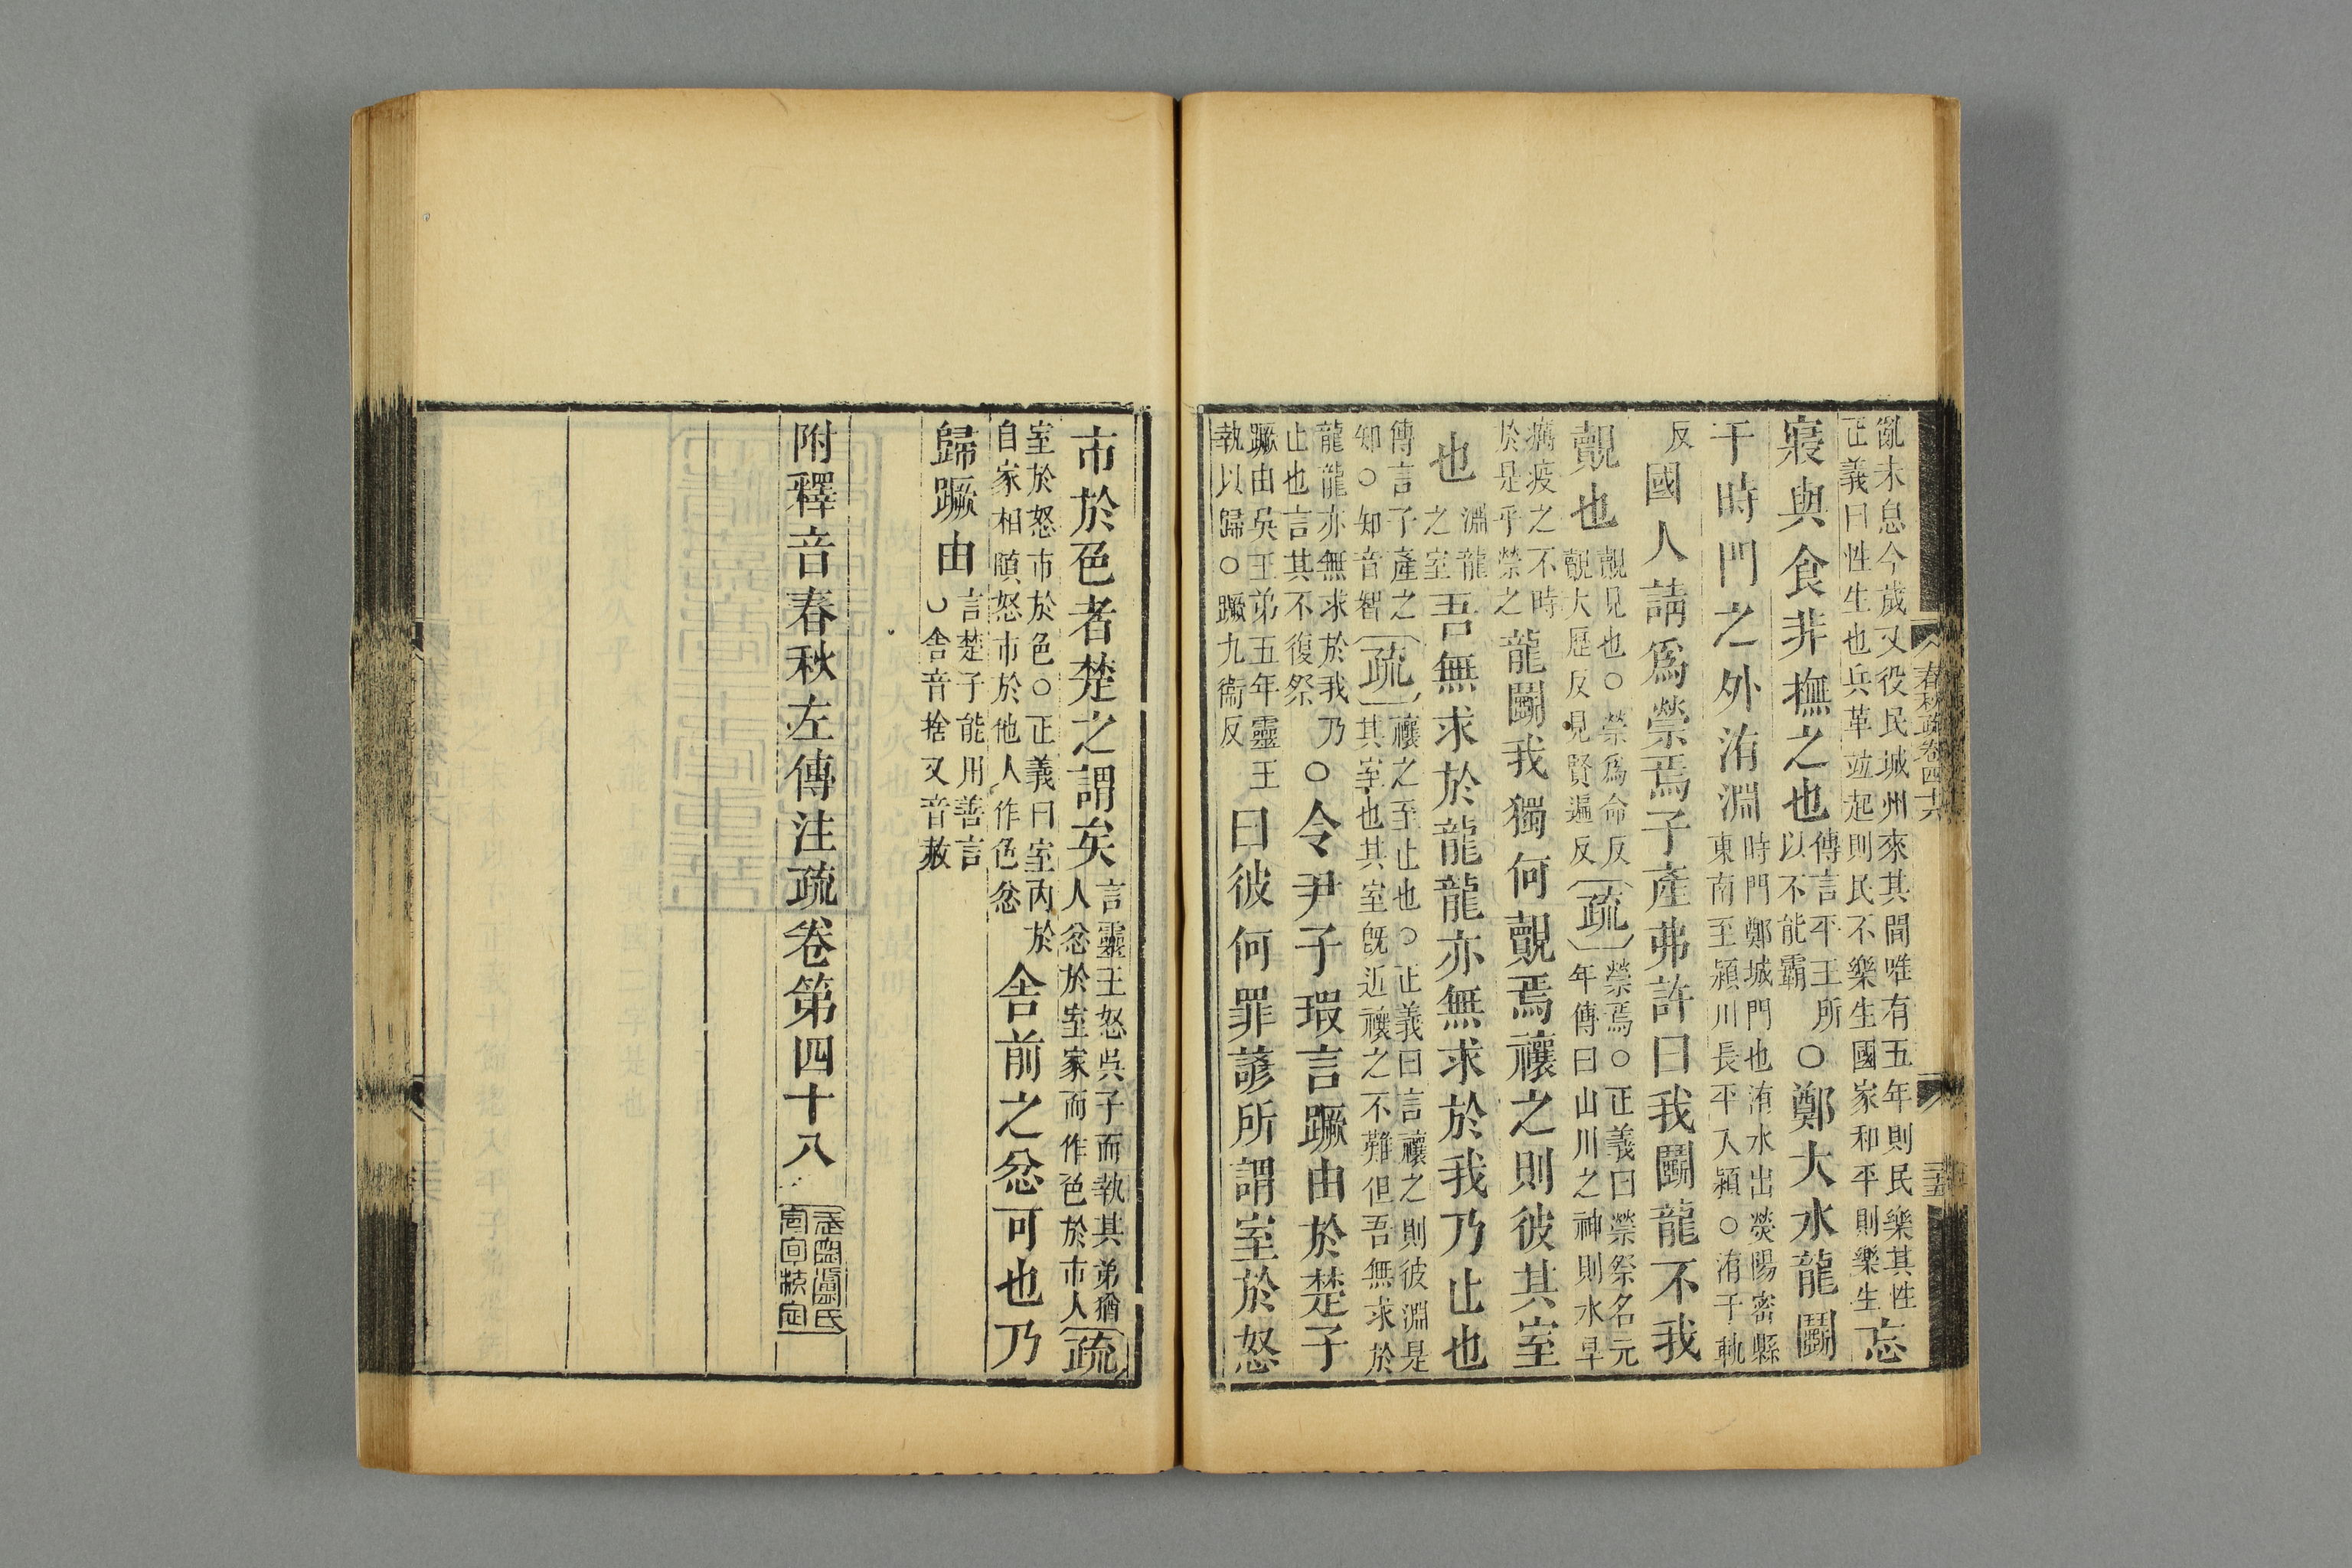 亂未息今歲又役民城州來其間唯有五年則民樂其性
正義曰性生也兵革竝起則民不樂生國家和平則樂生忘
寢與食非撫之也傳言平王所以不能霸○鄭大水龍鬬
于時門之外洧淵時門鄭城門也洧水出熒陽密縣東南至潁川長平入潁○洧于軌
反國人請爲禜焉子產弗許曰我鬬龍不我
覿也覿見也○禜爲命反覿大歷反見賢遍反疏禜焉○正義曰禜祭名元年傳曰山川之神則水旱
癘疫之不時於是乎禜之龍鬬我獨何覿焉禳之則彼其室
也淵龍之室吾無求於龍龍亦無求於我乃止也
傳言子產之知○知音智疏禳之至止也○正義曰言禳之則彼淵是其室也其室旣近禳之不難但吾無求於
龍龍亦無求於我乃止也言其不復祭○令尹子瑕言蹶由於楚子
蹶由吳王弟五年靈王執以歸○蹶九衞反曰彼何罪諺所謂室於怒
春秋疏卷四十八
三五
市於色者楚之謂矣言靈王怒吳子而執其弟猶人忿於室家而作色於市人疏
室於怒市於色○正義曰室內於自家相頤怒市於他人作色忿舍前之忿可也乃
歸蹶由言楚子能用善言○舍音捨又音赦
附釋音春秋左傳注疏卷第四十八